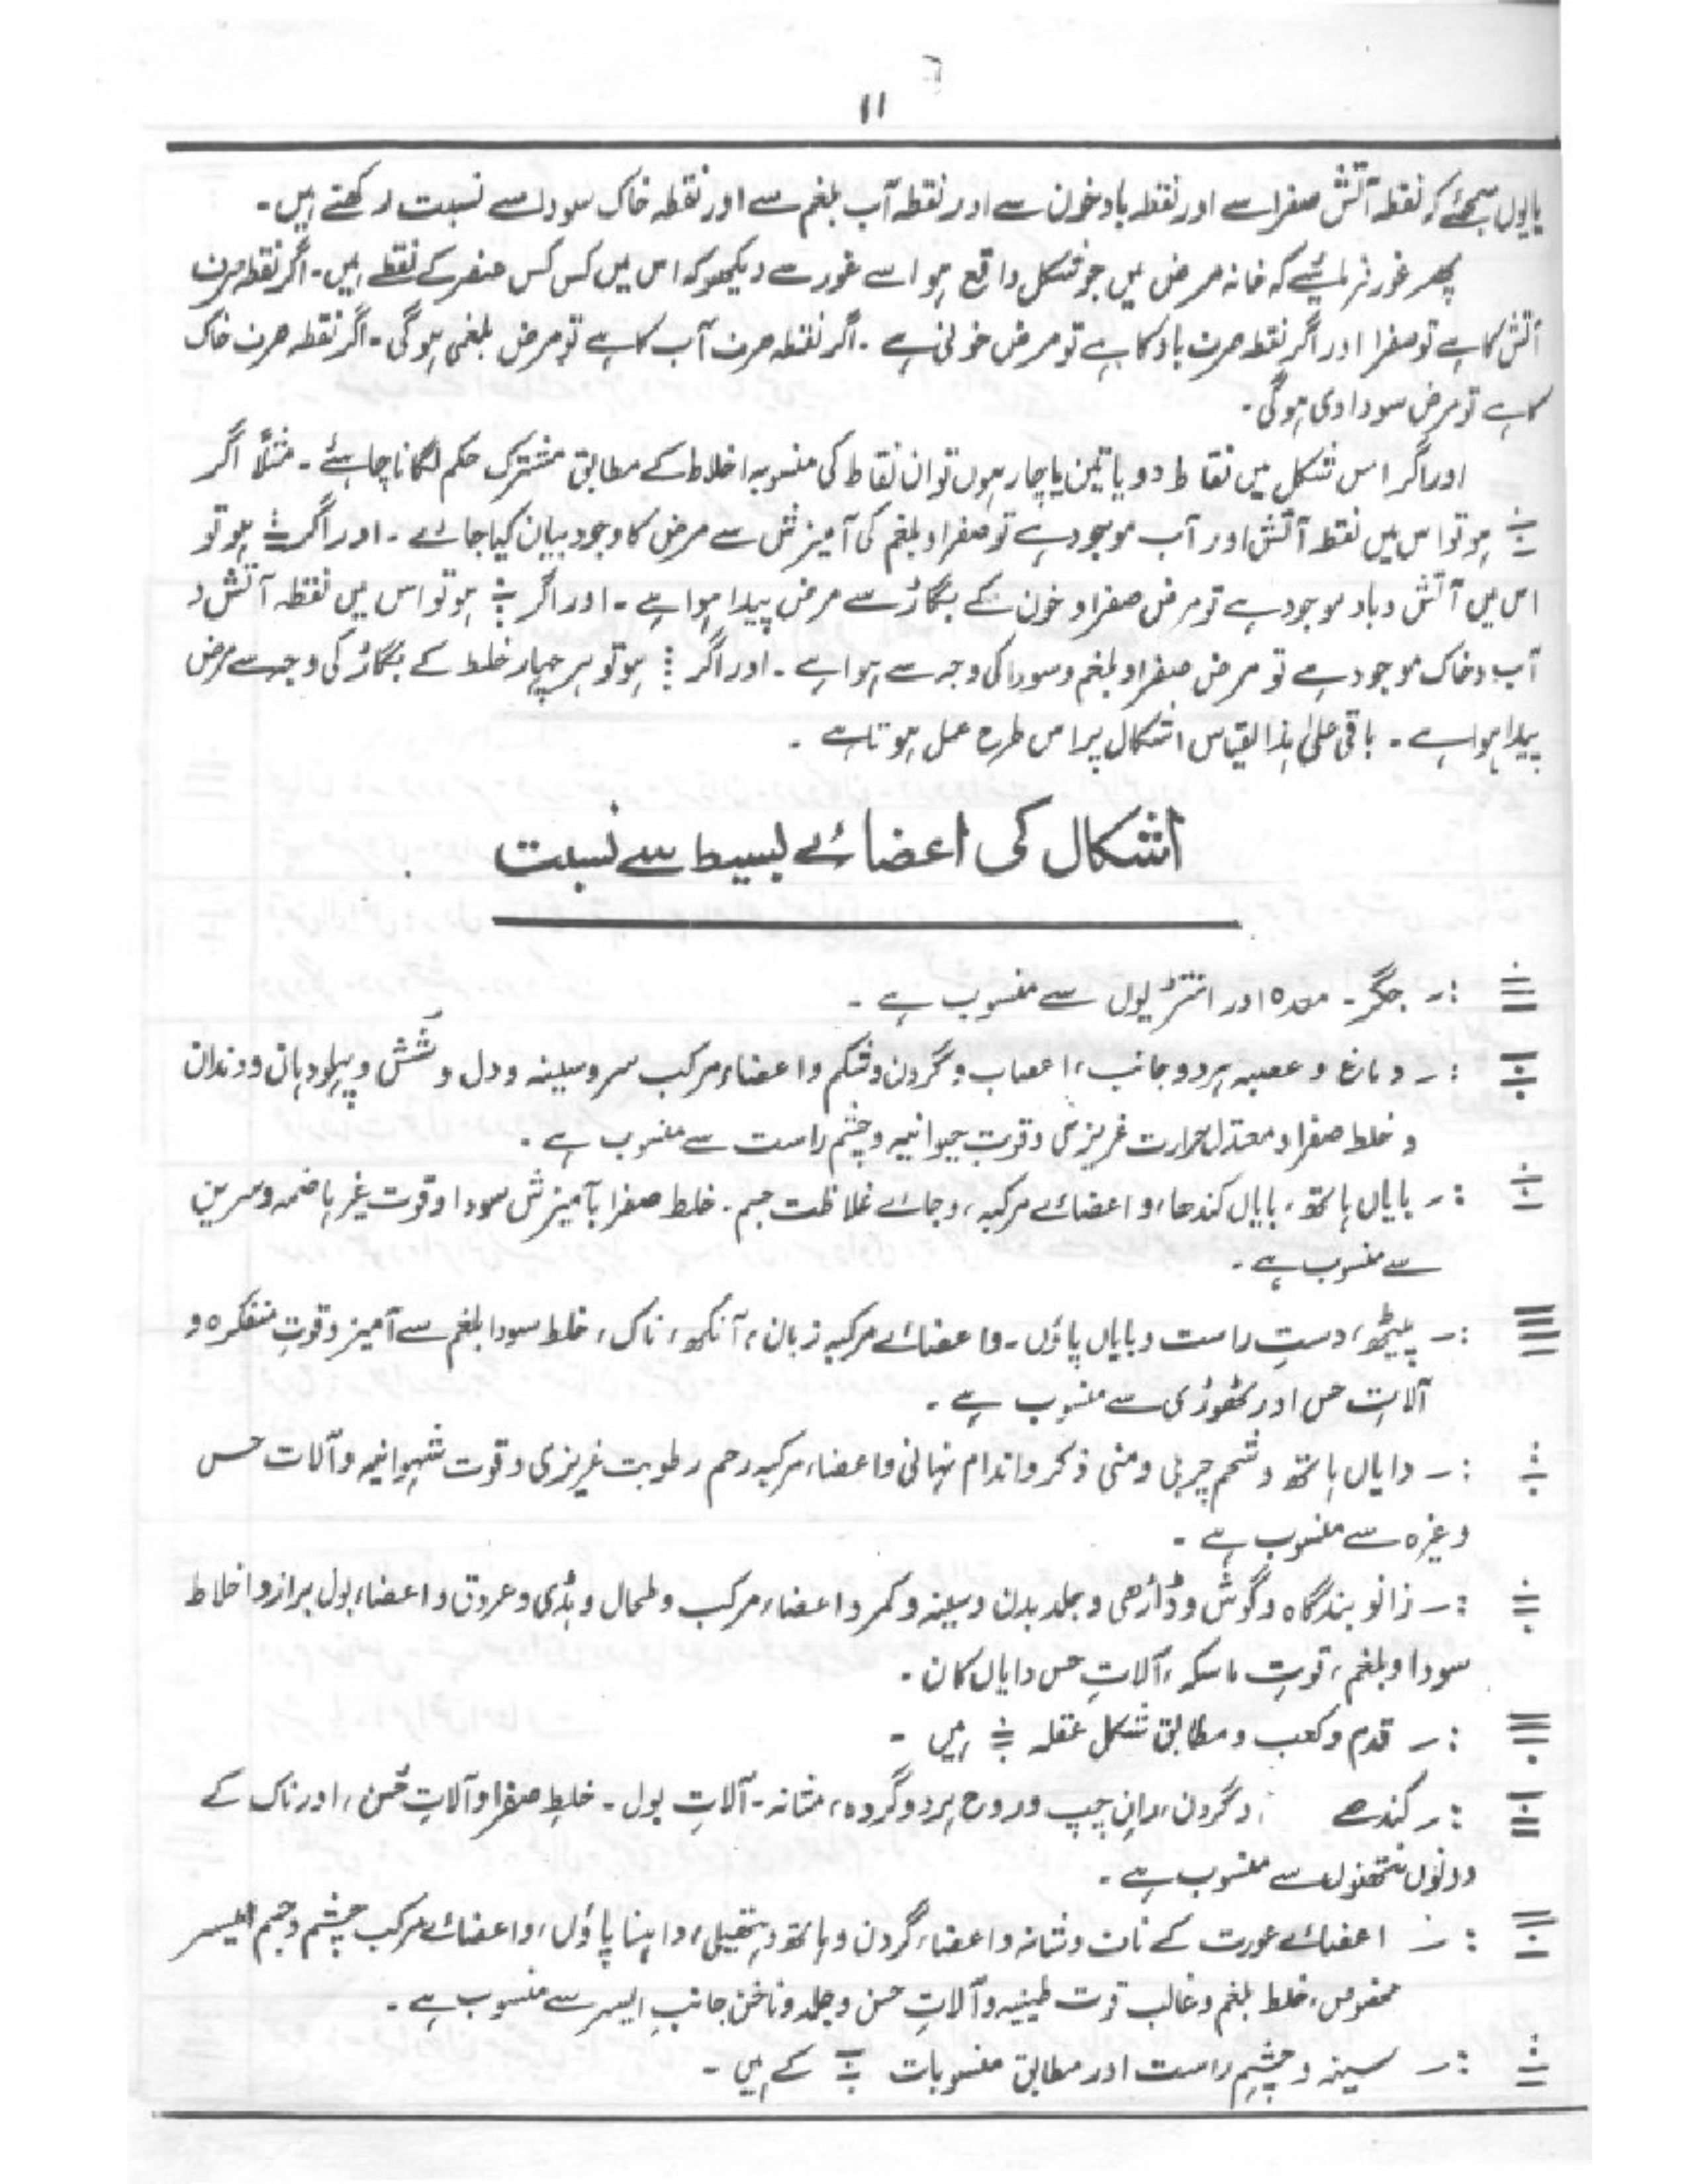 ۱۱
یایوں سمجھئے کہ نقطہ آتش صفرا سے اور نقطہ باد خون سے اور نقطہ آب بلغم سے اور نقطہ خاک سودا سے نسبت رکھتے ہیں۔
پھر غور فرمائیے کہ خانہ مرض میں جو شکل واقع ہو اسے غور سے دیکھو کہ اس میں کس کس عنصر کے نقطے ہیں۔ اگر نقطہ صرف
آتش کا ہے تو صفرا اور اگر نقطہ صرف باد کا ہے تو مرض خونی ہے ۔ اگر نقطہ صرف آب کا ہے تو مرض بلغمی ہوگی۔ اگر نقطہ صرف خاک
کا ہے تو مرض سوداوی ہوگی۔
اور اگر اس شکل میں نقاط دو یا تین یا چار ہوں تو ان نقاط کی منسوبہ اخلاط کے مطابق مشترک حکم لگانا چاہئے ۔ مثلاً اگر
ہو تو اس میں نقطہ آتش اور آب موجود ہے تو صفرا و بلغم کی آمیزش سے مرض کا وجود بیان کیا جائے ۔ اور اگر ہو تو
اس میں آتش و باد موجود ہے تو مرض صفرا و خون کے بگاڑ سے مرض پیدا ہوا ہے ۔ اور اگر ہو تو اس میں نقطہ آتش و
آب و خاک موجود ہے تو مرض صفرا و بلغم و سودا کی وجہ سے ہوا ہے ۔ اور اگر ہو تو ہر چہار خلط کے بگاڑ کی وجہ سے مرض
پیدا ہوا ہے ۔ باقی علیٰ ہذا القیاس اشکال پر اس طرح عمل ہوتا ہے ۔
اشکال کی اعضائے بسیط سے نسبت
:۔ جگر ۔ معدہ اور انتڑیوں سے منسوب ہے ۔
:۔ دماغ و عصبہ ہر دو جانب، اعصاب و گردن و شکم و اعضاء مرکب سر و سینہ و دل و شش و پہلو دہان و دندان
و خلط صفرا و معتدل حرارت غریزی و قوتِ حیوانیہ و چشم راست سے منسوب ہے ۔
:۔ بایاں ہاتھ، بایاں کندھا، و اعضائے مرکبہ، و جائے غلاظت جسم ۔ خلط صفرا بآمیزش سودا و قوت غیر ہاضمہ و سرین
سے منسوب ہے ۔
:۔ پیٹھ، دستِ راست و بایاں پاؤں ۔ و اعضائے مرکبہ زبان، آنکھ، ناک، خلط سودا بلغم سے آمیز و قوتِ متفکرہ و
آلات حس اور ٹھوڑی سے منسوب ہے ۔
:۔ دایاں ہاتھ و شحم چربی و منی ذکر و اندام نہانی و اعضاء مرکبہ رحم رطوبت غریزی و قوت شہوانیہ و آلات حس
وغیرہ سے منسوب ہے ۔
:۔ زانو بندگاہ و گوش و ڈاڑھی و جلد بدن و سینہ و کمر و اعضاء مرکب و طحال و ہڈی و عروق و اعضاء بول براز و اخلاط
سودا و بلغم، قوتِ ماسکہ، آلاتِ حس دایاں کان ۔
:۔ قدم و کعب و مطابق شکل عقلہ ہیں ۔
:۔ کندھے و گردن، ران چپ و روح ہر دو گردہ، مثانہ ۔ آلات بول ۔ خلطِ صفرا و آلاتِ حسن، اور ناک کے
دونوں نتھنوں سے منسوب ہے ۔
:۔ اعضائے عورت کے ناف و شانہ و اعضاء گردن و ہاتھ و ہتھیلی، داہنا پاؤں، و اعضائے مرکب چشم و جسم ایسر
مخصوص، خلط بلغم و غالب قوت طینیہ و آلاتِ حسن و جلد و ناخن جانبِ ایسر سے منسوب ہے ۔
:۔ سینہ و چشمِ راست اور مطابق منسوبات کے ہیں ۔